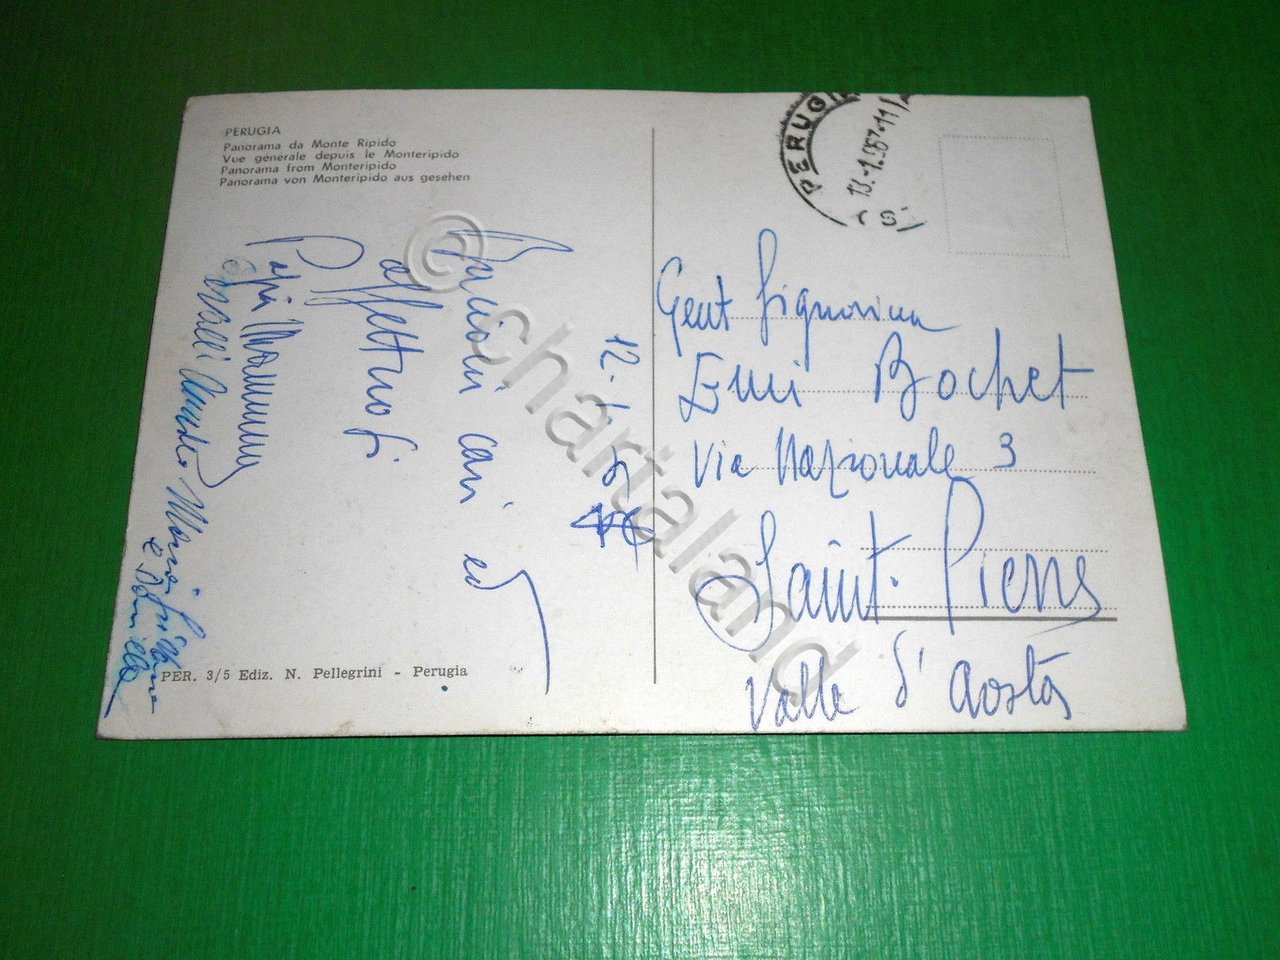 PERUGIA
Panorama da Monte Ripido
Vue générale depuis le Monteripido
Panorama from Monteripido
Panorama von Monteripido aus gesehen
PERUGIA
13.-1.967-11
(S)
12-1-
cari ed
affettuosi
Papà Mamma
Gent Signorina
Emi Bochet
Via Nazionale 3
Saint. Pierre
Valle d'Aosta
PER. 3/5 Ediz. N. Pellegrini - Perugia
© chartaland